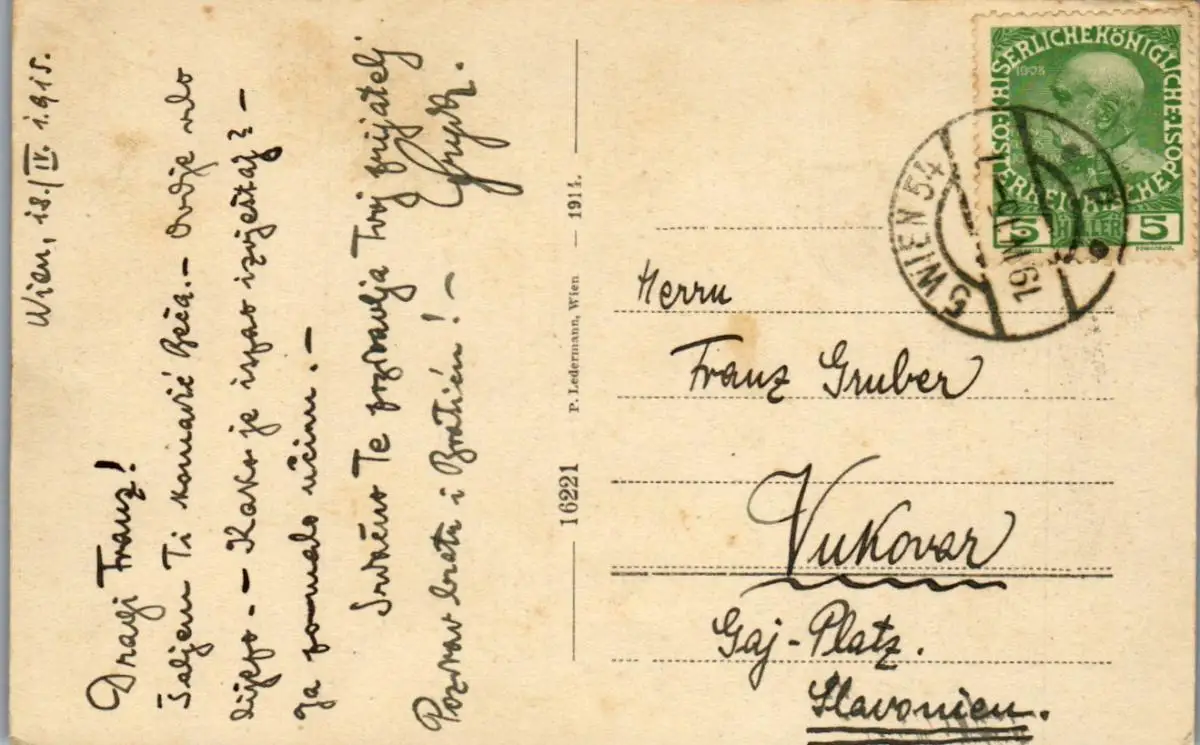 Wien, 18./IV. 1915.
Dragi Franz!
Šaljem Ti komadić Beča. – Ovdje vrlo
lijepo. – Kako je ispao izvještaj? –
Ja pomalo učim. –
Srdačno Te pozdravlja Tvoj prijatelj
Pozdrav bratu i Bratiću! –
16221 P. Ledermann, Wien — 1914.
KAISERLICHE KÖNIGLICHE ÖSTERREICHISCHE POST
1908
5 HELLER 5
5 WIEN 54
19 IV 15
Herrn
Franz Gruber
Vukovar
Gaj-Platz.
Slavonien.